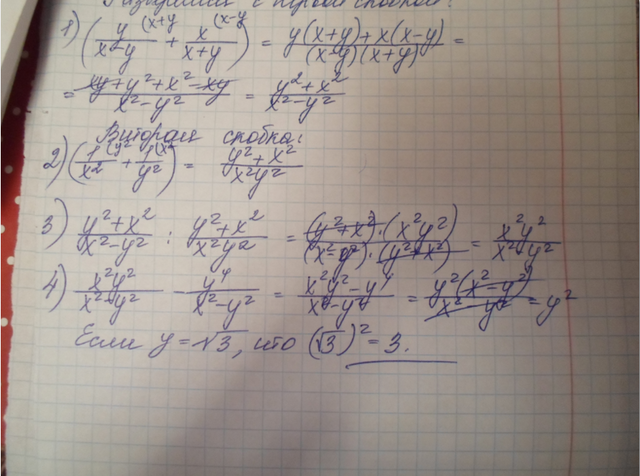 с первой скобкой:
1) (y/(x-y) (x+y + x/(x+y) (x-y) = (y(x+y)+x(x-y))/((x-y)(x+y)) =
= (xy+y²+x²-xy)/(x²-y²) = (y²+x²)/(x²-y²)
Вторая скобка:
2) (1/x² (y² + 1/y² (x²) = (y²+x²)/(x²y²)
3) (y²+x²)/(x²-y²) : (y²+x²)/(x²y²) = ((y²+x²)·(x²y²))/((x²-y²)·(y²+x²)) = x²y²/(x²-y²)
4) x²y²/(x²-y²) - y⁴/(x²-y²) = (x²y²-y⁴)/(x²-y²) = y²(x²-y²)/(x²-y²) = y²
Если y=√3, то (√3)²=3.